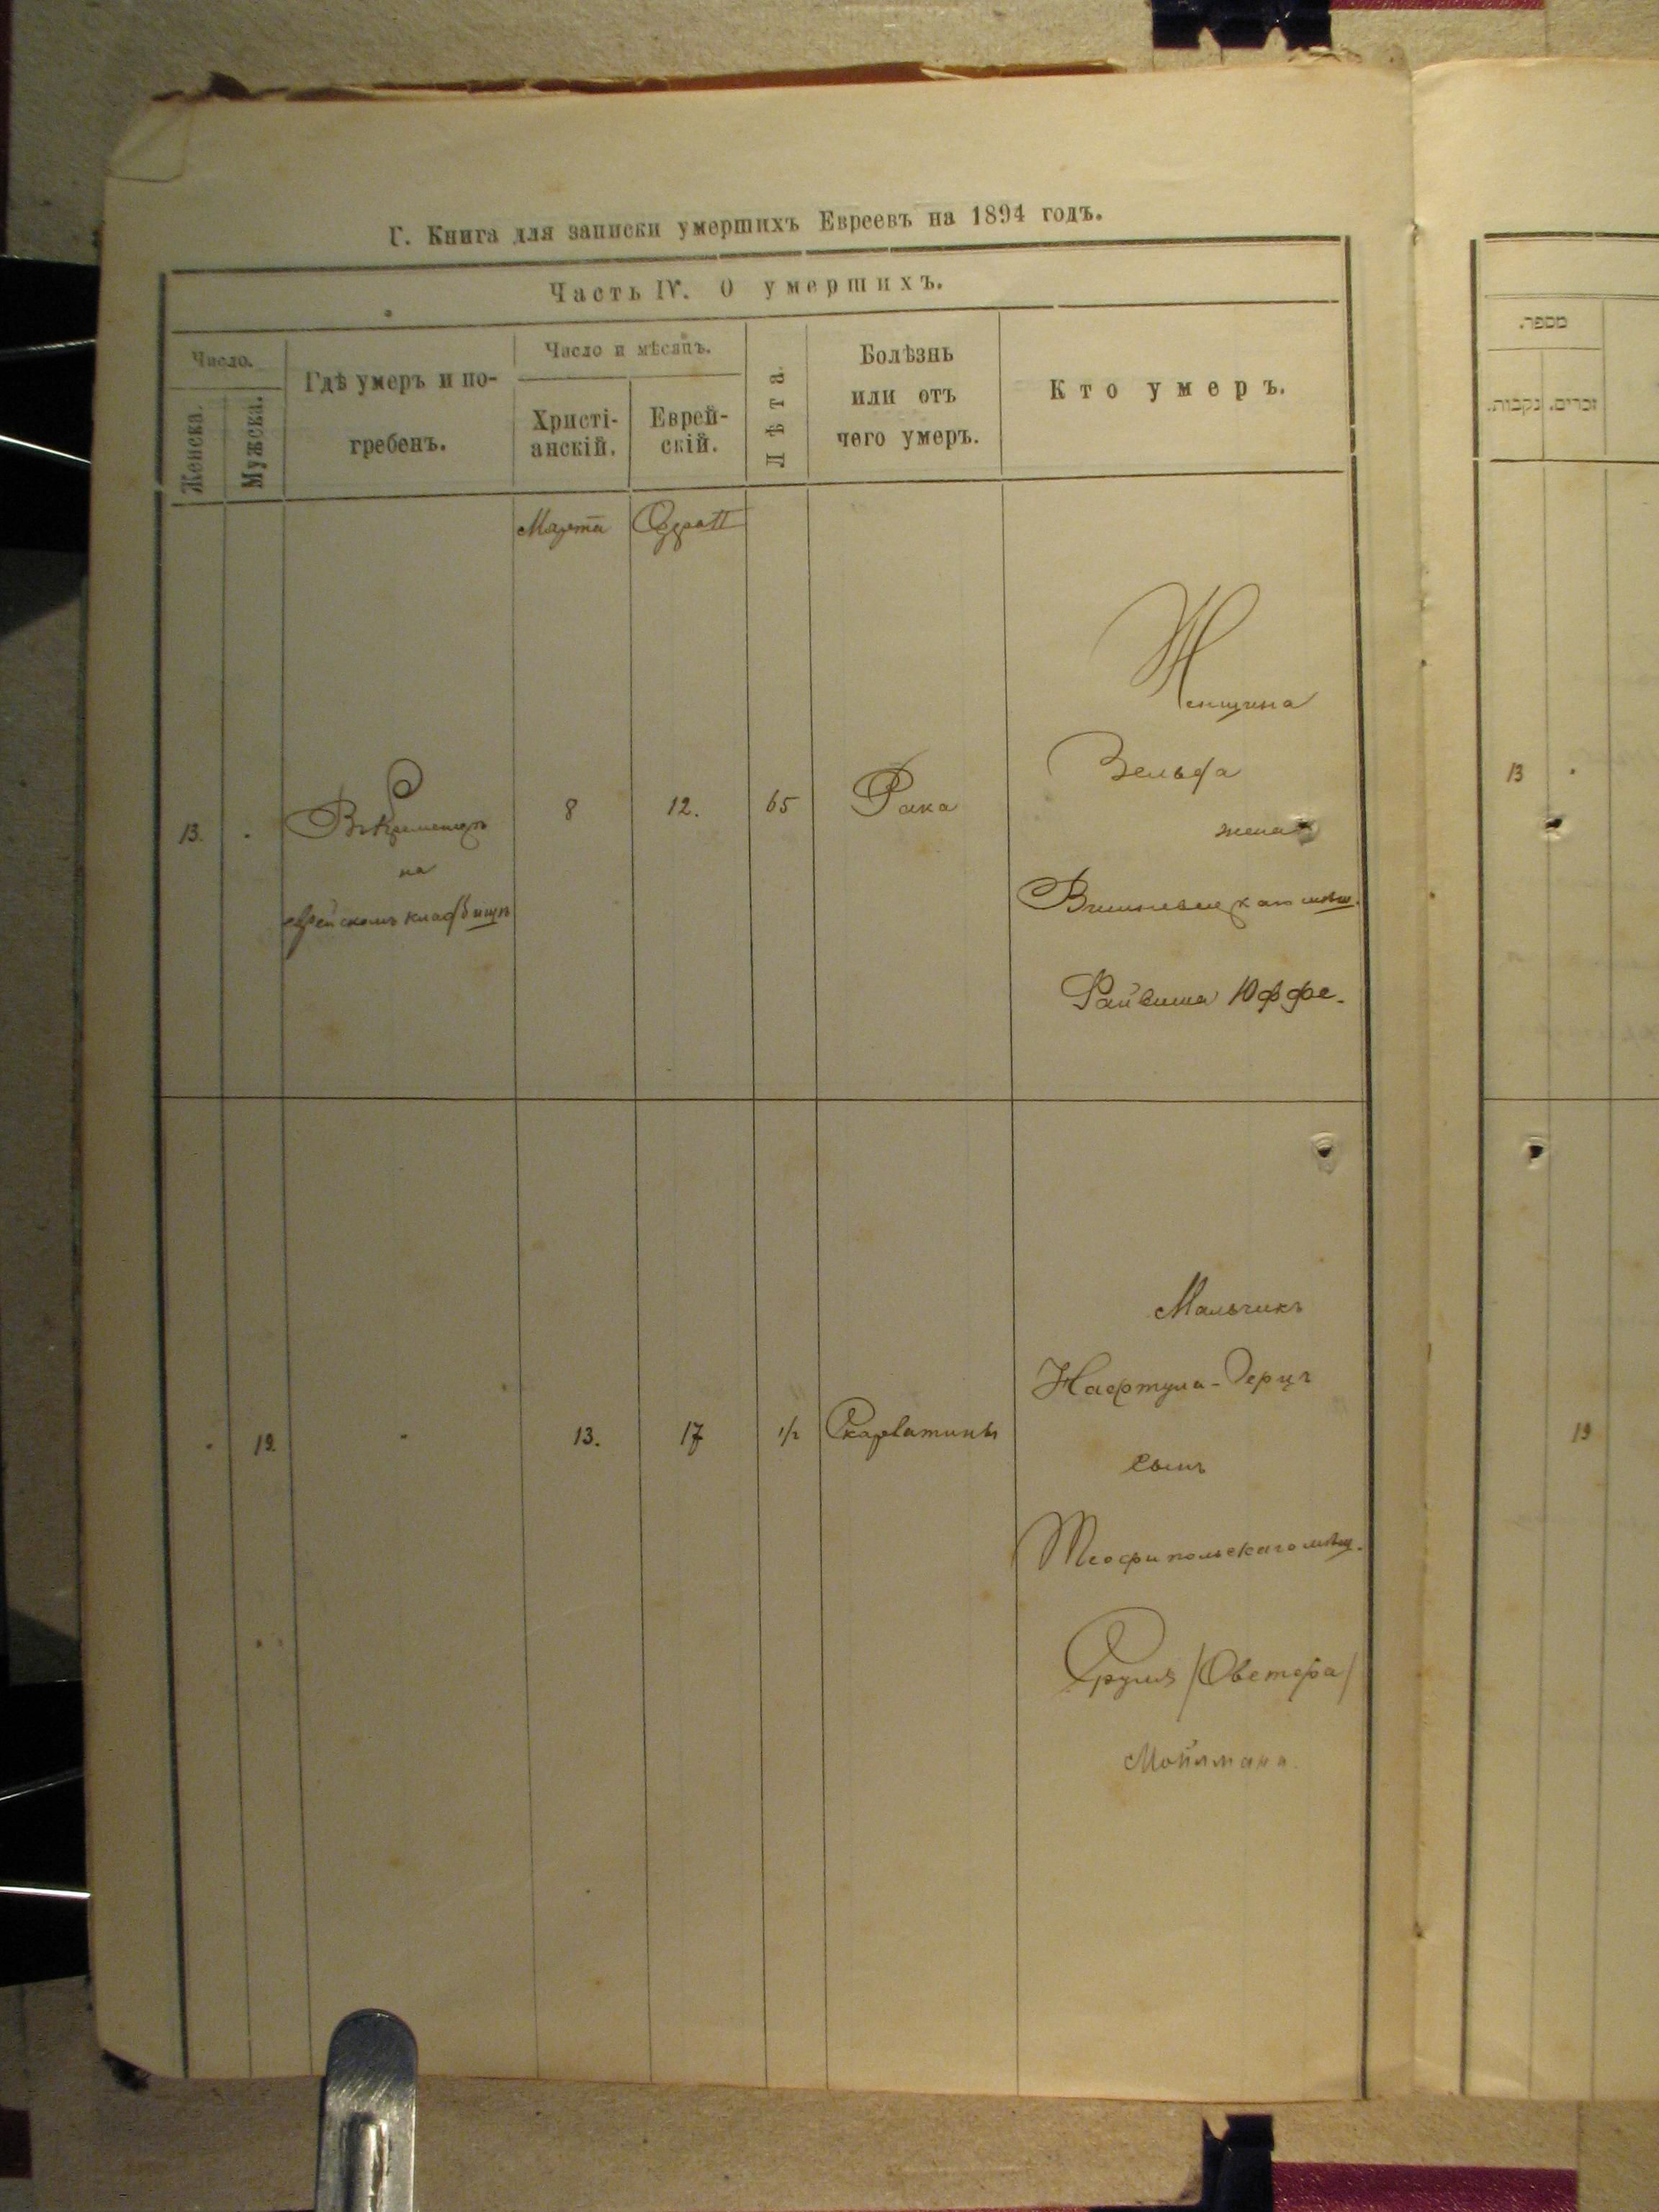 Г. Книга для записки умершихъ Евреевъ на 1894 годъ.
Часть IV. О умершихъ.
Число.
Женска.
Мужска.
Гдѣ умеръ и по-
гребенъ.
Число и мѣсяцъ.
Христі-
анскій.
Еврей-
скій.
Лѣта.
Болѣзнь
или отъ
чего умеръ.
Кто умеръ.
Марта
13.
Въ Кременцѣ
на
еврейскомъ кладбищѣ
8
12.
65
Рака
Женщина
Зельда
жена
Вишневецкаго мѣщ.
Файвиша Юффе.
19.
13.
17
1/2
Скарлатины
Мальчикъ
Нафтула-Герцъ
сынъ
Теофипольскаго мѣщ.
Сруля
Мойлмана.
מספר.
נקבות.
זכרים.
13
19